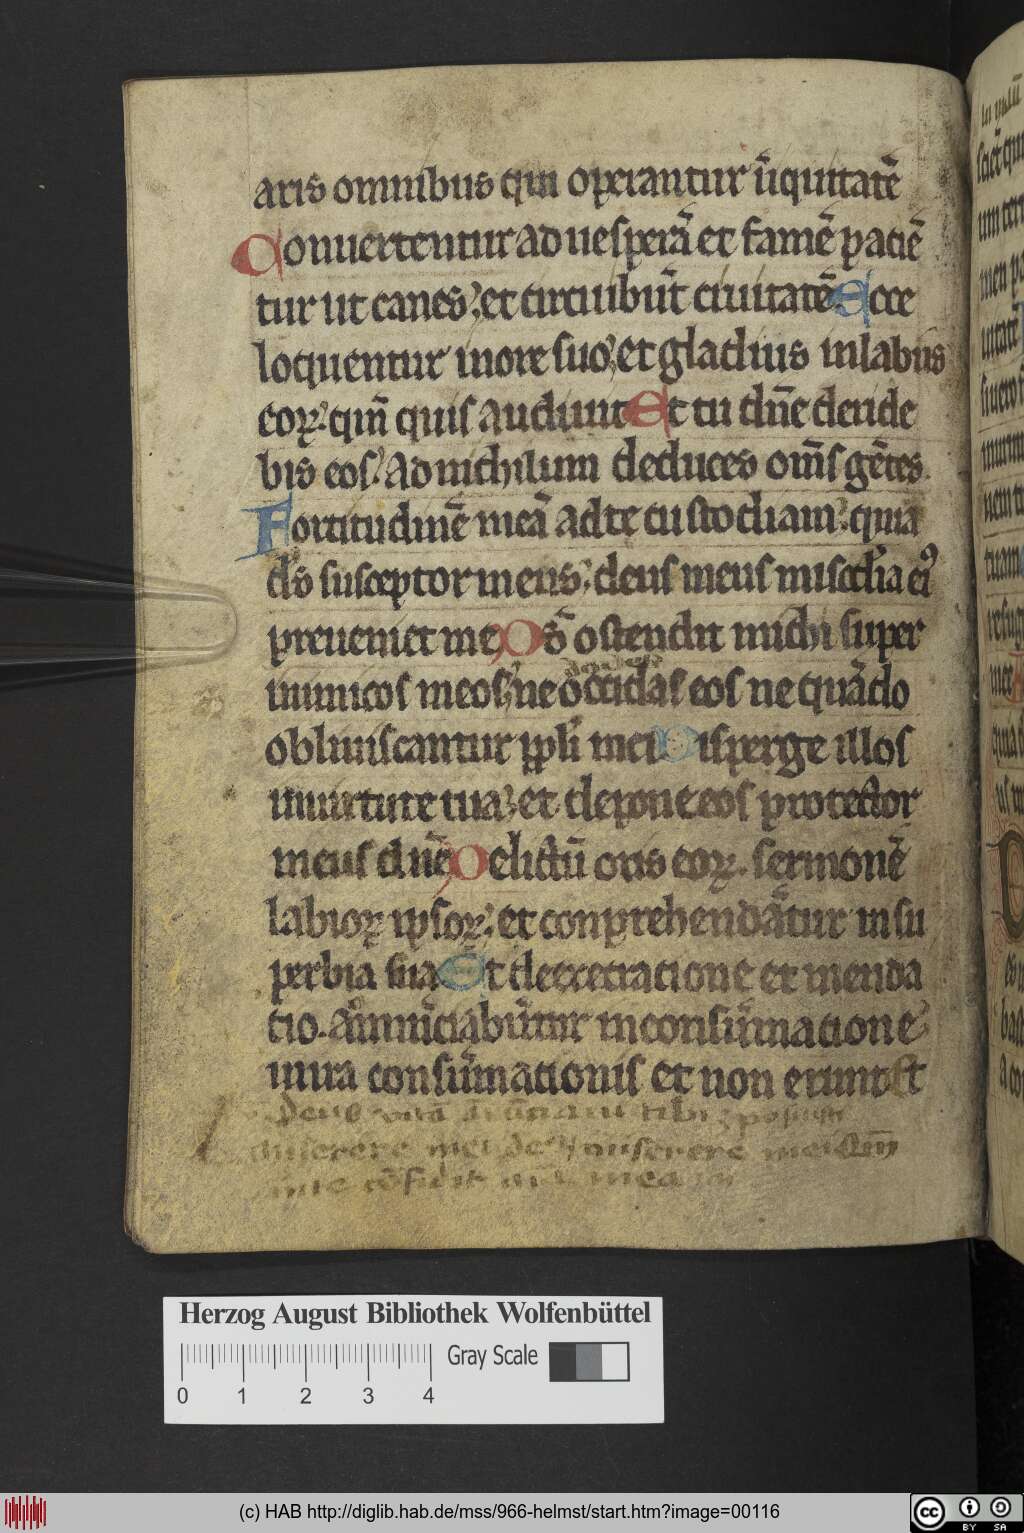 aris omnibus qui operantur īiquitatē
Conuertentur ad uesperā et famē patiē
tur ut canes; et circuibūt ciuitatē Ecce
loquentur in ore suo; et gladius in labiis
eoꝝ; qm̄ quis audiuit Et tu dn̄e deride
bis eos; ad nichilum deduces om̄s gētes
Fortitudinē meā ad te custodiam; quia
ds̄ susceptor meus; deus meus misc̄dia eiꝰ
preueniet me Ds̄ ostendit michi super
inimicos meos; ne occidas eos ne quādo
obliuiscantur ppl̄i mei Disperge illos
in uirtute tua; et depone eos protector
meus dn̄e Delictū oris eoꝝ. sermonē
labioꝝ ipsoꝝ; et conprehendātur in su
perbia sua Et de execratione et menda
tio. annūciabūtur in consūmatione
in ira consūmationis et non erunt Et
deus uitā
miserere mei deus miserere mei qm̄
mea
Herzog August Bibliothek Wolfenbüttel
0 1 2 3 4 Gray Scale
(c) HAB http://diglib.hab.de/mss/966-helmst/start.htm?image=00116
cc BY SA